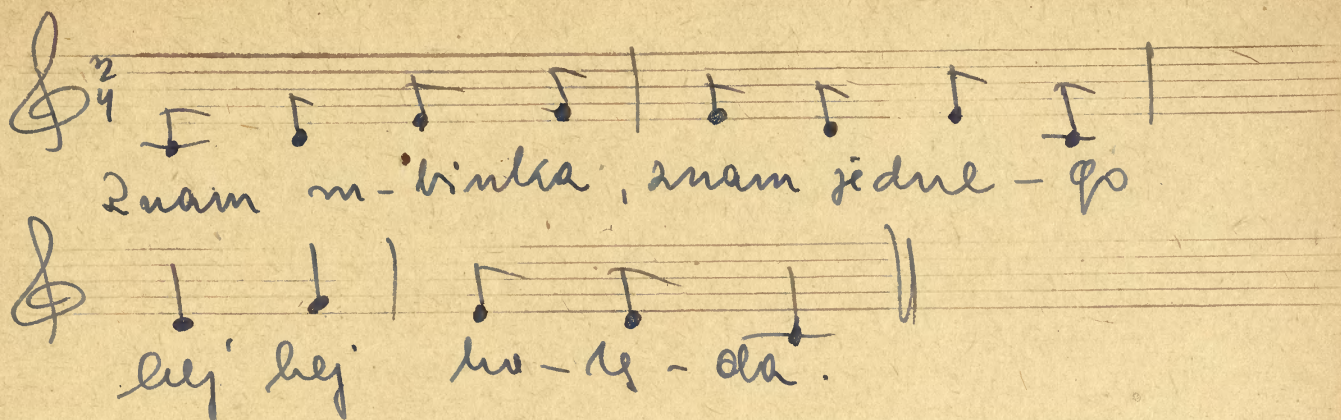 2/4
Znam m-binka, znam jedne-go
hej hej ko-lę-da.